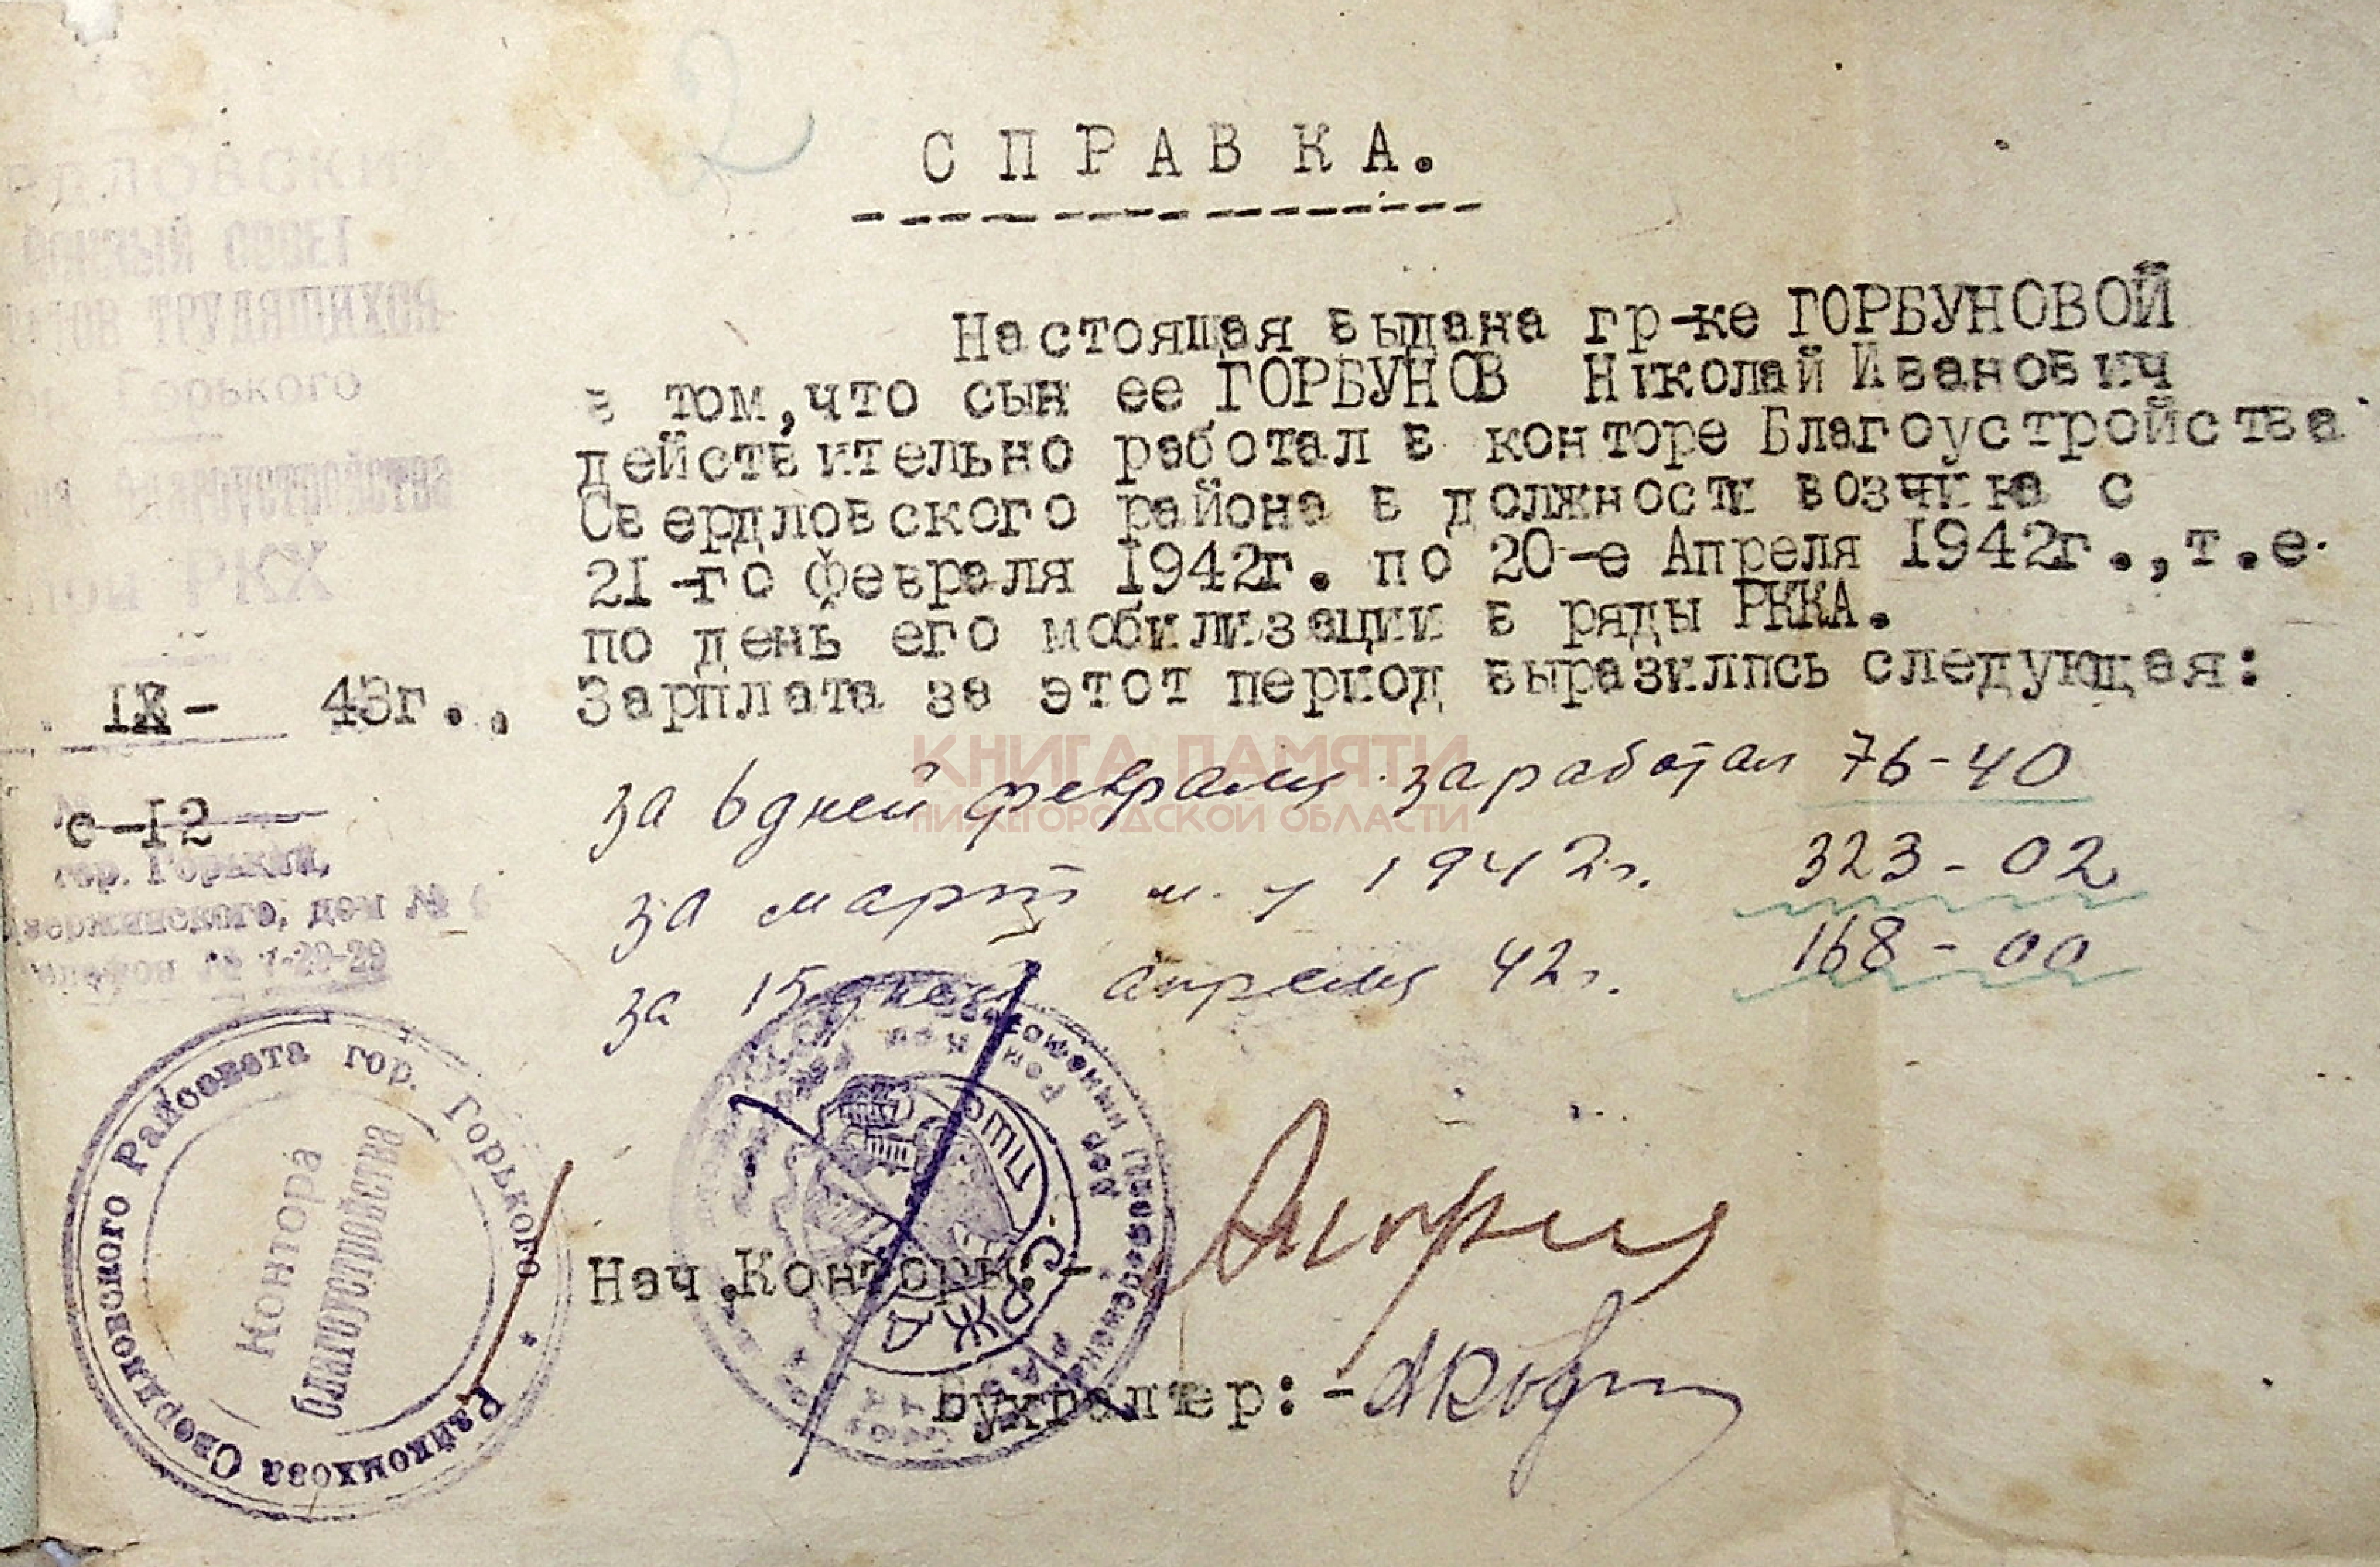 2
СПРАВКА.
Настоящая выдана гр-ке ГОРБУНОВОЙ
в том,что сын ее ГОРБУНОВ Николай Иванович
действительно работал в конторе Благоустройства
Свердловского района в должности возчика с
2I-го февраля I942г. по 20-е Апреля I942г.,т.е.
по день его мобилизации в ряды РККА.
Зарплата за этот период выразилпсь следующая:
за 6 дней февраля заработал 76-40
за март м-ц 1942г. 323-02
за 15 дней апреля 42г. 168-00
Нач.Конторы:-
Бухгалтер:-
РДЛОВСКИ
СОВЕТ
ТРУДЯЩИХСЯ
Горького
Благоустройства
РКХ
IX- 43г..
с-I2
гор. Горький,
Дзержинского, дом №
телефон № 1-29-29
Райкомхоза Свердловского Райсовета гор. Горького *
Контора
благоустройства
КНИГА ПАМЯТИ
НИЖЕГОРОДСКОЙ ОБЛАСТИ